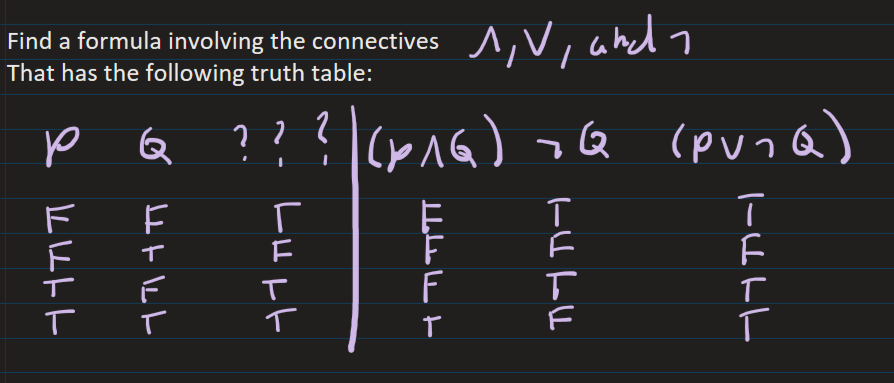 Find a formula involving the connectives ∧, ∨, and ¬
That has the following truth table:
P Q ? ? ? (P∧Q) ¬Q (P∨¬Q)
F F T F T T
F T F F F F
T F T F T T
T T T T F T